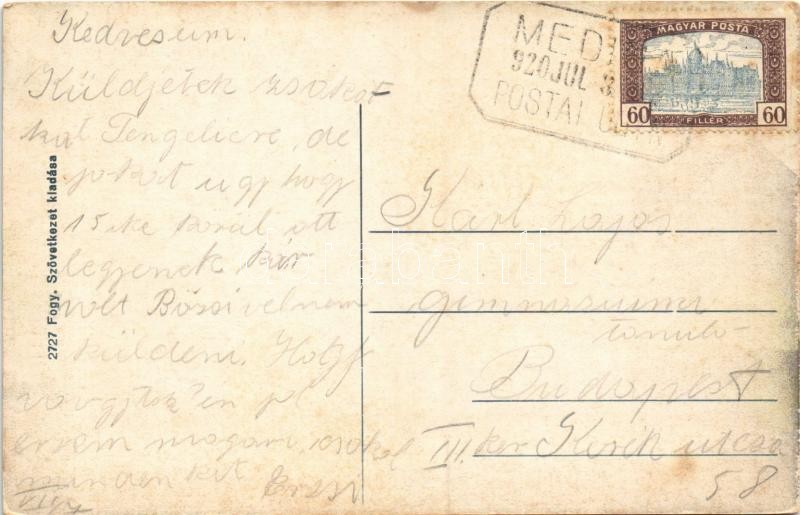 Kedveseim.
Küldjetek zsákot
kat Tengelicre, de
jokat ugy hogy
15 ike körül ott
legyenek, kár
volt Bözsivel nem
küldeni. Hogy
vagytok én jól
érzem magam, csokol
mindenkit
Erzsi
2727 Fogy. Szövetkezet kiadása
MED
920 JUL
POSTAI
MAGYAR POSTA
60 FILLÉR 60
Lajos
gimnaziumi
tanuló
Budapest
III. ker. utca
58